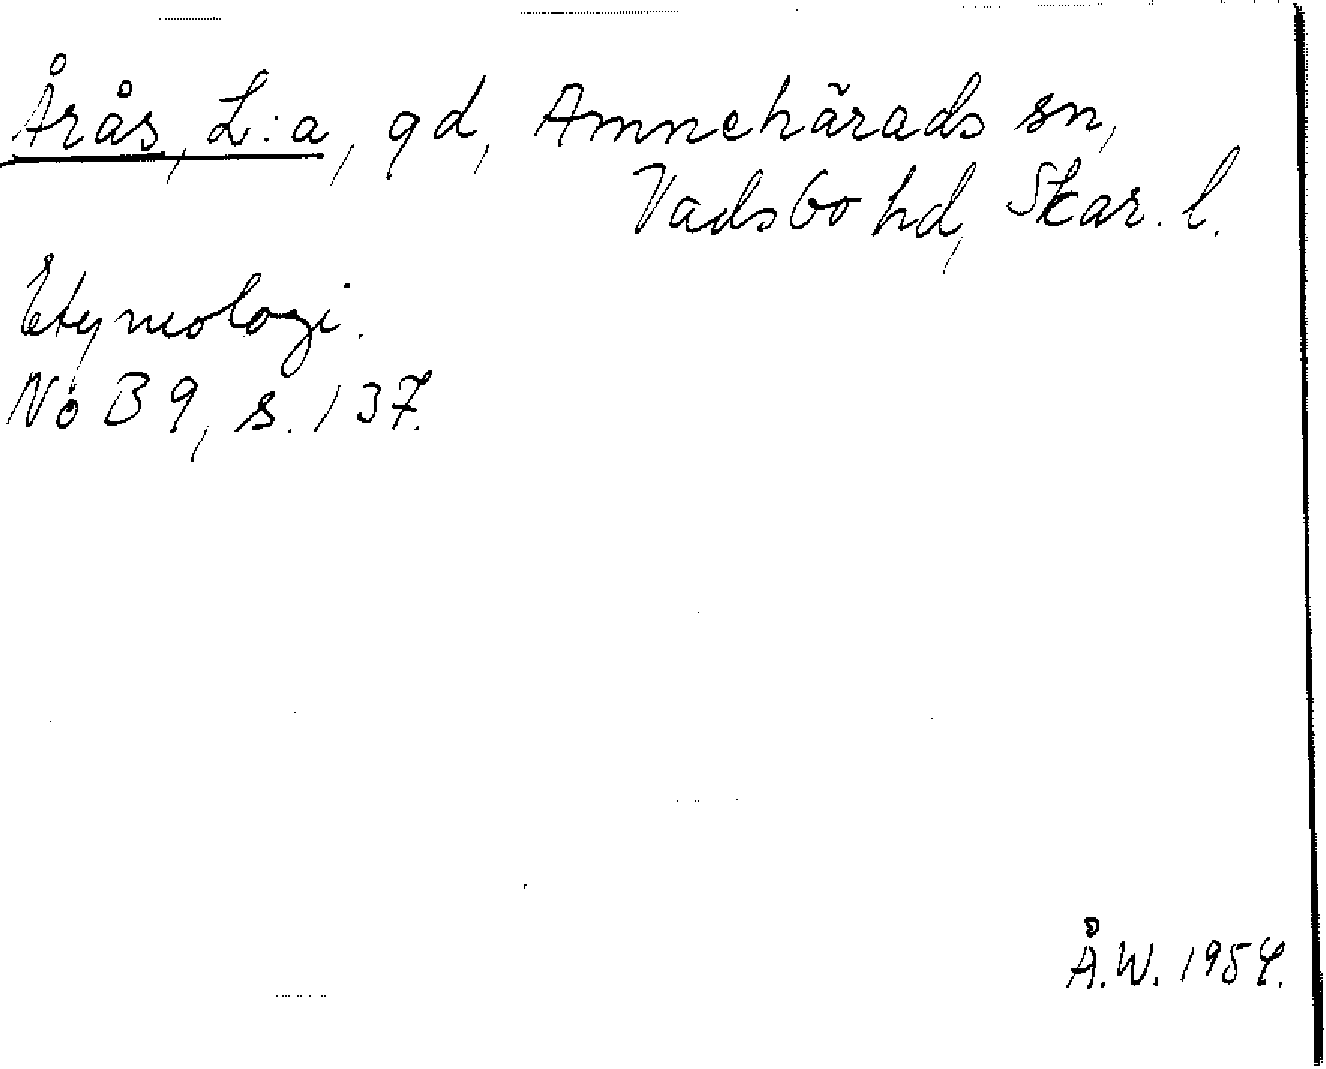 Årås, L:a, gd, Amnehärads sn,
Vadsbo hd, Skar. l.
Etymologi.
NoB 9, s. 137.
Å.W. 1954.